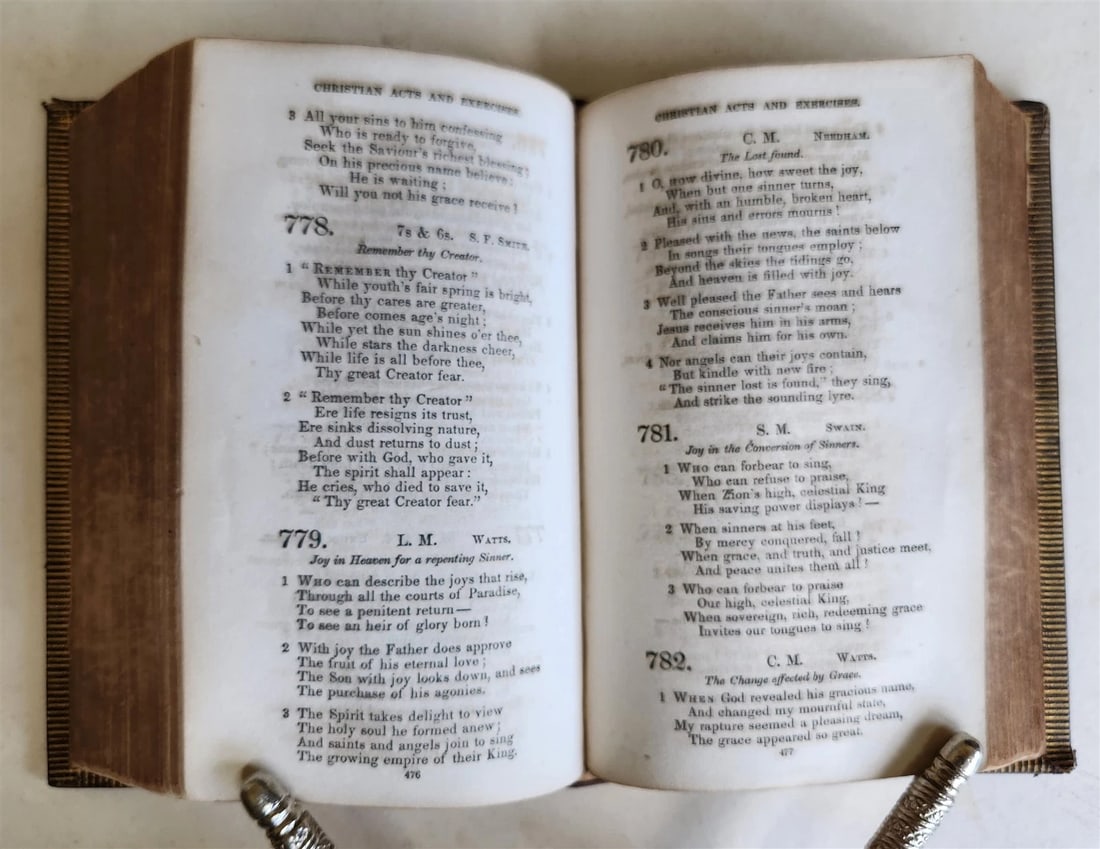 CHRISTIAN ACTS AND EXERCISES.
3 All your sins to him confessing
Who is ready to forgive,
Seek the Saviour's richest blessing;
On his precious name believe:
He is waiting;
Will you not his grace receive?
778. 7s & 6s. S. F. SMITH.
Remember thy Creator.
1 "REMEMBER thy Creator"
While youth's fair spring is bright,
Before thy cares are greater,
Before comes age's night;
While yet the sun shines o'er thee,
While stars the darkness cheer,
While life is all before thee,
Thy great Creator fear.
2 "Remember thy Creator"
Ere life resigns its trust,
Ere sinks dissolving nature,
And dust returns to dust;
Before with God, who gave it,
The spirit shall appear:
He cries, who died to save it,
"Thy great Creator fear."
779. L. M. WATTS.
Joy in Heaven for a repenting Sinner.
1 WHO can describe the joys that rise,
Through all the courts of Paradise,
To see a penitent return—
To see an heir of glory born!
2 With joy the Father does approve
The fruit of his eternal love;
The Son with joy looks down, and sees
The purchase of his agonies.
3 The Spirit takes delight to view
The holy soul he formed anew;
And saints and angels join to sing
The growing empire of their King.
476
CHRISTIAN ACTS AND EXERCISES.
780. C. M. NEEDHAM.
The Lost found.
1 O, how divine, how sweet the joy,
When but one sinner turns,
And, with an humble, broken heart,
His sins and errors mourns!
2 Pleased with the news, the saints below
In songs their tongues employ;
Beyond the skies the tidings go,
And heaven is filled with joy.
3 Well pleased the Father sees and hears
The conscious sinner's moan;
Jesus receives him in his arms,
And claims him for his own.
4 Nor angels can their joys contain,
But kindle with new fire;
"The sinner lost is found," they sing,
And strike the sounding lyre.
781. S. M. SWAIN.
Joy in the Conversion of Sinners.
1 WHO can forbear to sing,
Who can refuse to praise,
When Zion's high, celestial King
His saving power displays!—
2 When sinners at his feet,
By mercy conquered, fall!
When grace, and truth, and justice meet,
And peace unites them all!
3 Who can forbear to praise
Our high, celestial King,
When sovereign, rich, redeeming grace
Invites our tongues to sing!
782. C. M. WATTS.
The Change effected by Grace.
1 WHEN God revealed his gracious name,
And changed my mournful state,
My rapture seemed a pleasing dream,
The grace appeared so great.
477